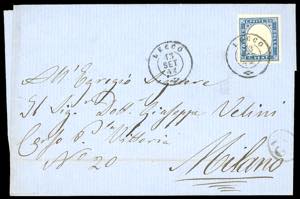 LECCO
15
SET
LECCO
All' Egregio Signore
Il Sig. Dott. Giuseppe Velini
Corso P.ta Vittoria
No 20
Milano